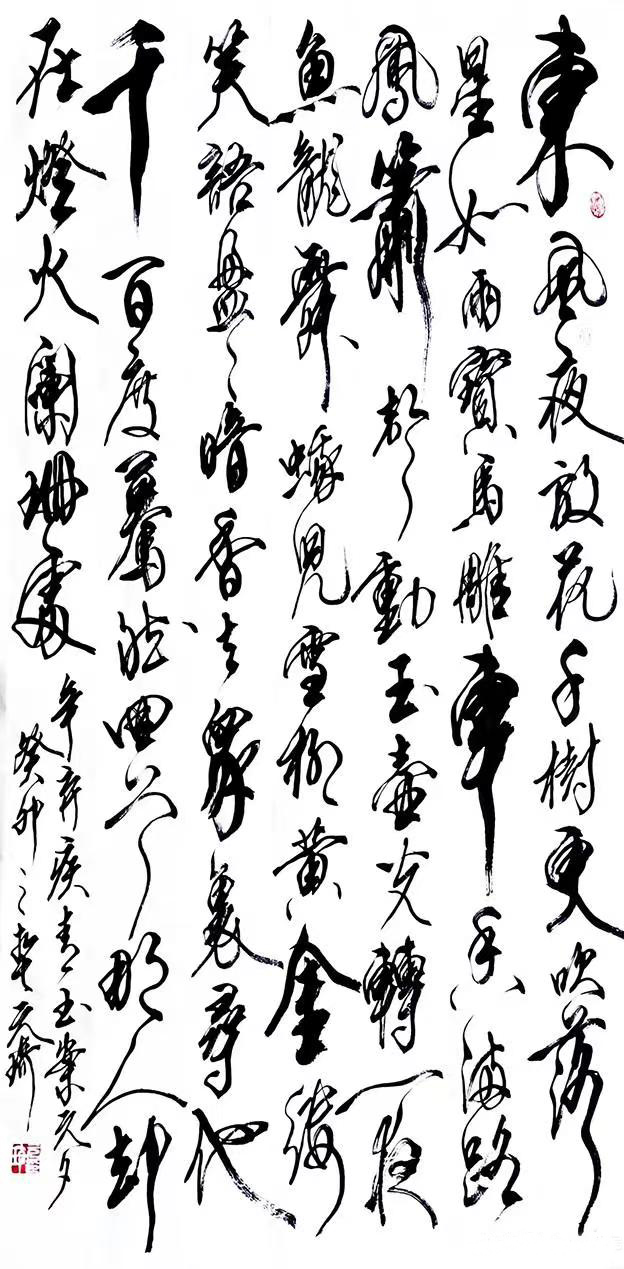 東風夜放花千樹更吹落
星如雨寶馬雕車香滿路
鳳簫聲動玉壺光轉一夜
魚龍舞蛾兒雪柳黃金縷
笑語盈〻暗香去衆裏尋他
千百度驀然回首那人卻
在燈火闌珊處
辛棄疾青玉案元夕
癸卯之元琦